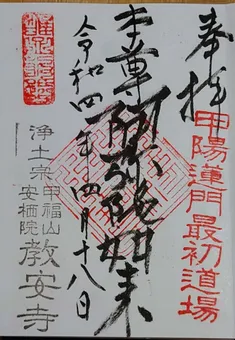 奉拝
甲陽蓮門最初道場
本尊阿弥陀如来
令和四年四月十八日
浄土宗
甲福山
安栖院
教安寺